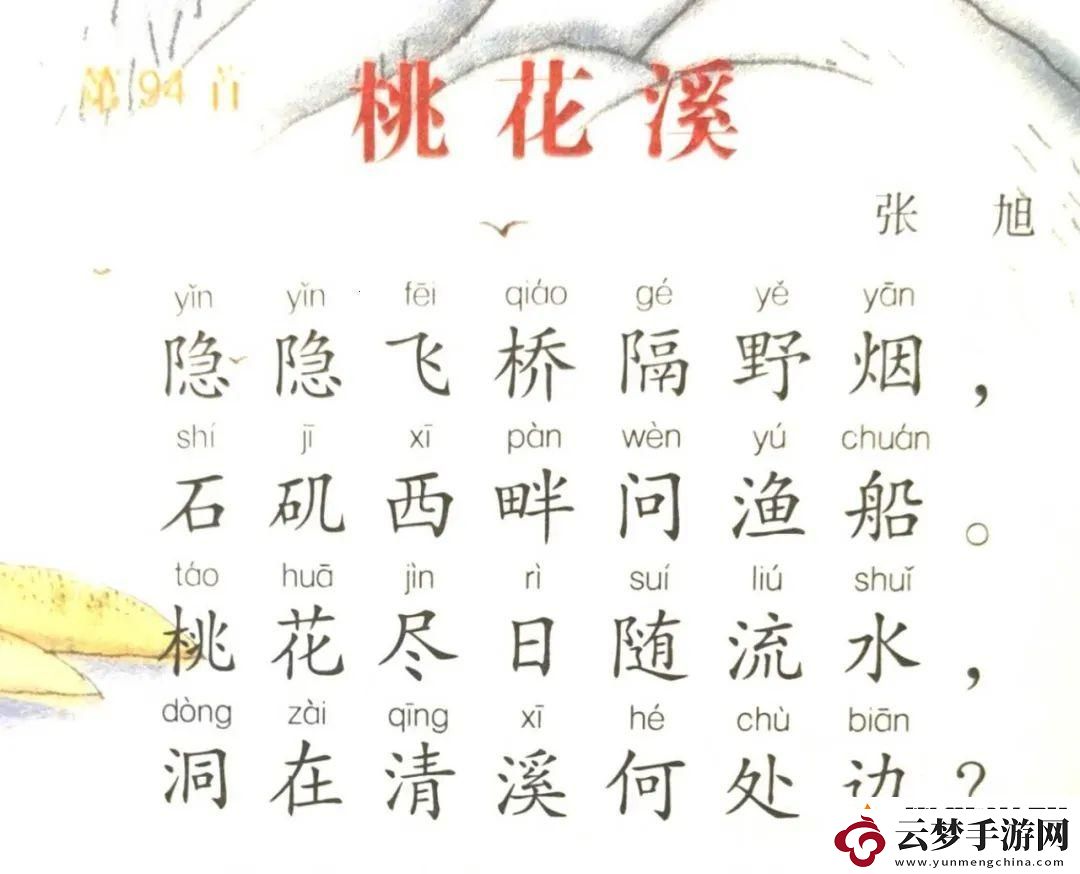 第94首
桃花溪
张 旭
yǐn yǐn fēi qiáo gé yě yān
隐隐飞桥隔野烟，
shí jī xī pàn wèn yú chuán
石矶西畔问渔船。
táo huā jìn rì suí liú shuǐ
桃花尽日随流水，
dòng zài qīng xī hé chù biān
洞在清溪何处边？
云梦手游网
www.yunmengchina.com